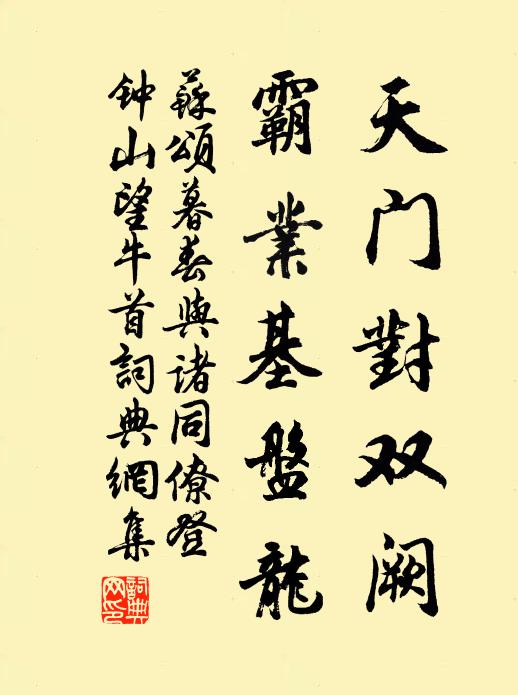 天门對双阙
霸業基盤龍
蘇頌暮春與諸同僚登
钟山望牛首詞典網集
詞典网印